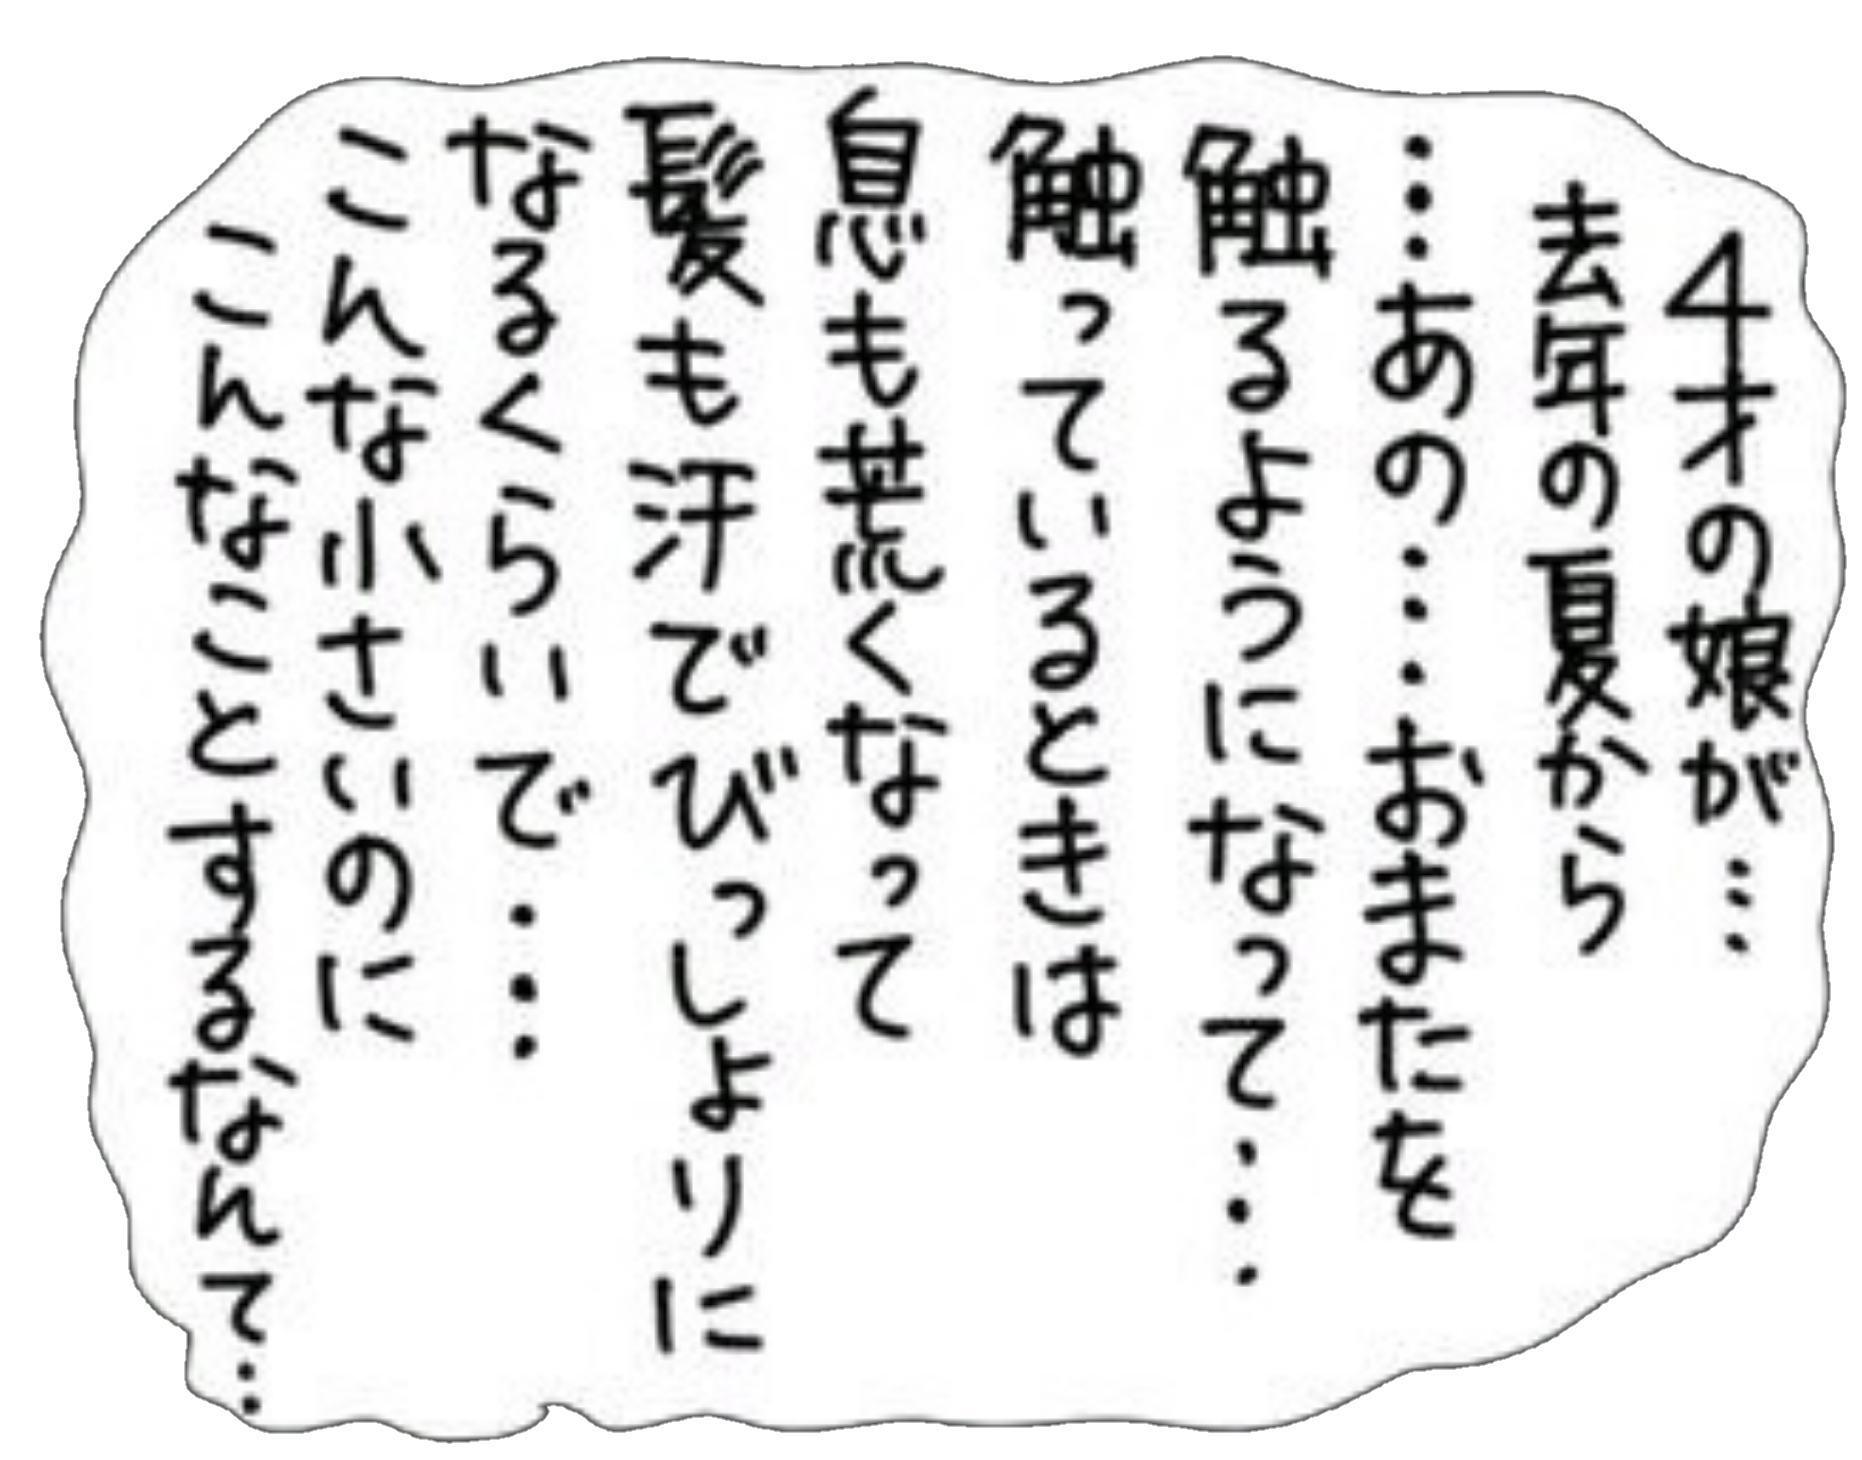 4才の娘が…
去年の夏から
…あの…おまたを
触るようになって…
触っているときは
息も荒くなって
髪も汗でびっしょりに
なるくらいで…
こんな小さいのに
こんなことするなんて…